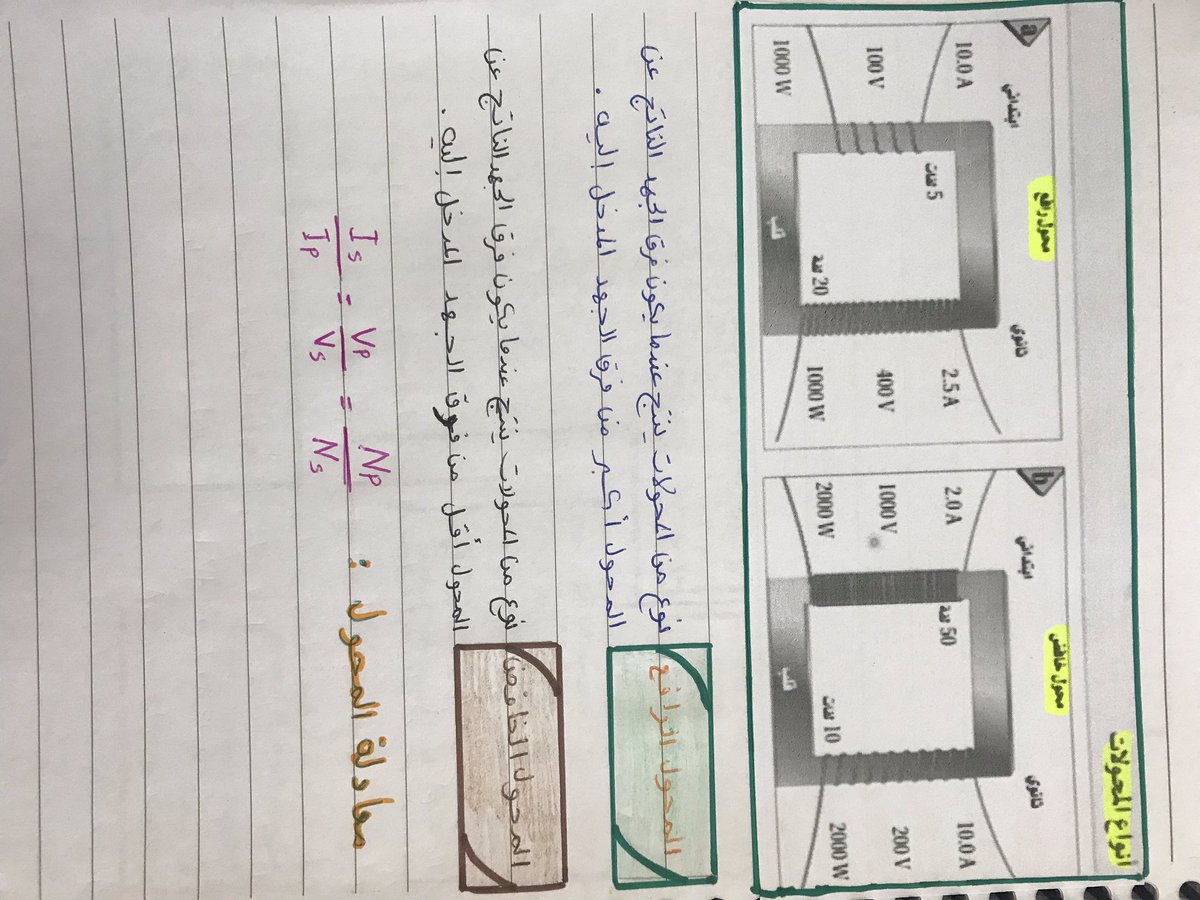 انواع المحولات
محول رافع
محول خافض
a
ابتدائي
ثانوي
10.0 A
100 V
1000 W
5 لفات
20 لفة
قلب
2.5 A
400 V
1000 W
b
ابتدائي
ثانوي
2.0 A
1000 V
2000 W
50 لفة
10 لفات
قلب
10.0 A
200 V
2000 W
المحول الرافع نوع من المحولات ينتج عندما يكون فرق الجهد الناتج عن
المحول أكبر من فرق الجهد المدخل إليه .
المحول الخافض نوع من المحولات ينتج عندما يكون فرق الجهد الناتج عن
المحول أقل من فرق الجهد المدخل إليه .
معادلة المحول :
Is/Ip = Vp/Vs = Np/Ns